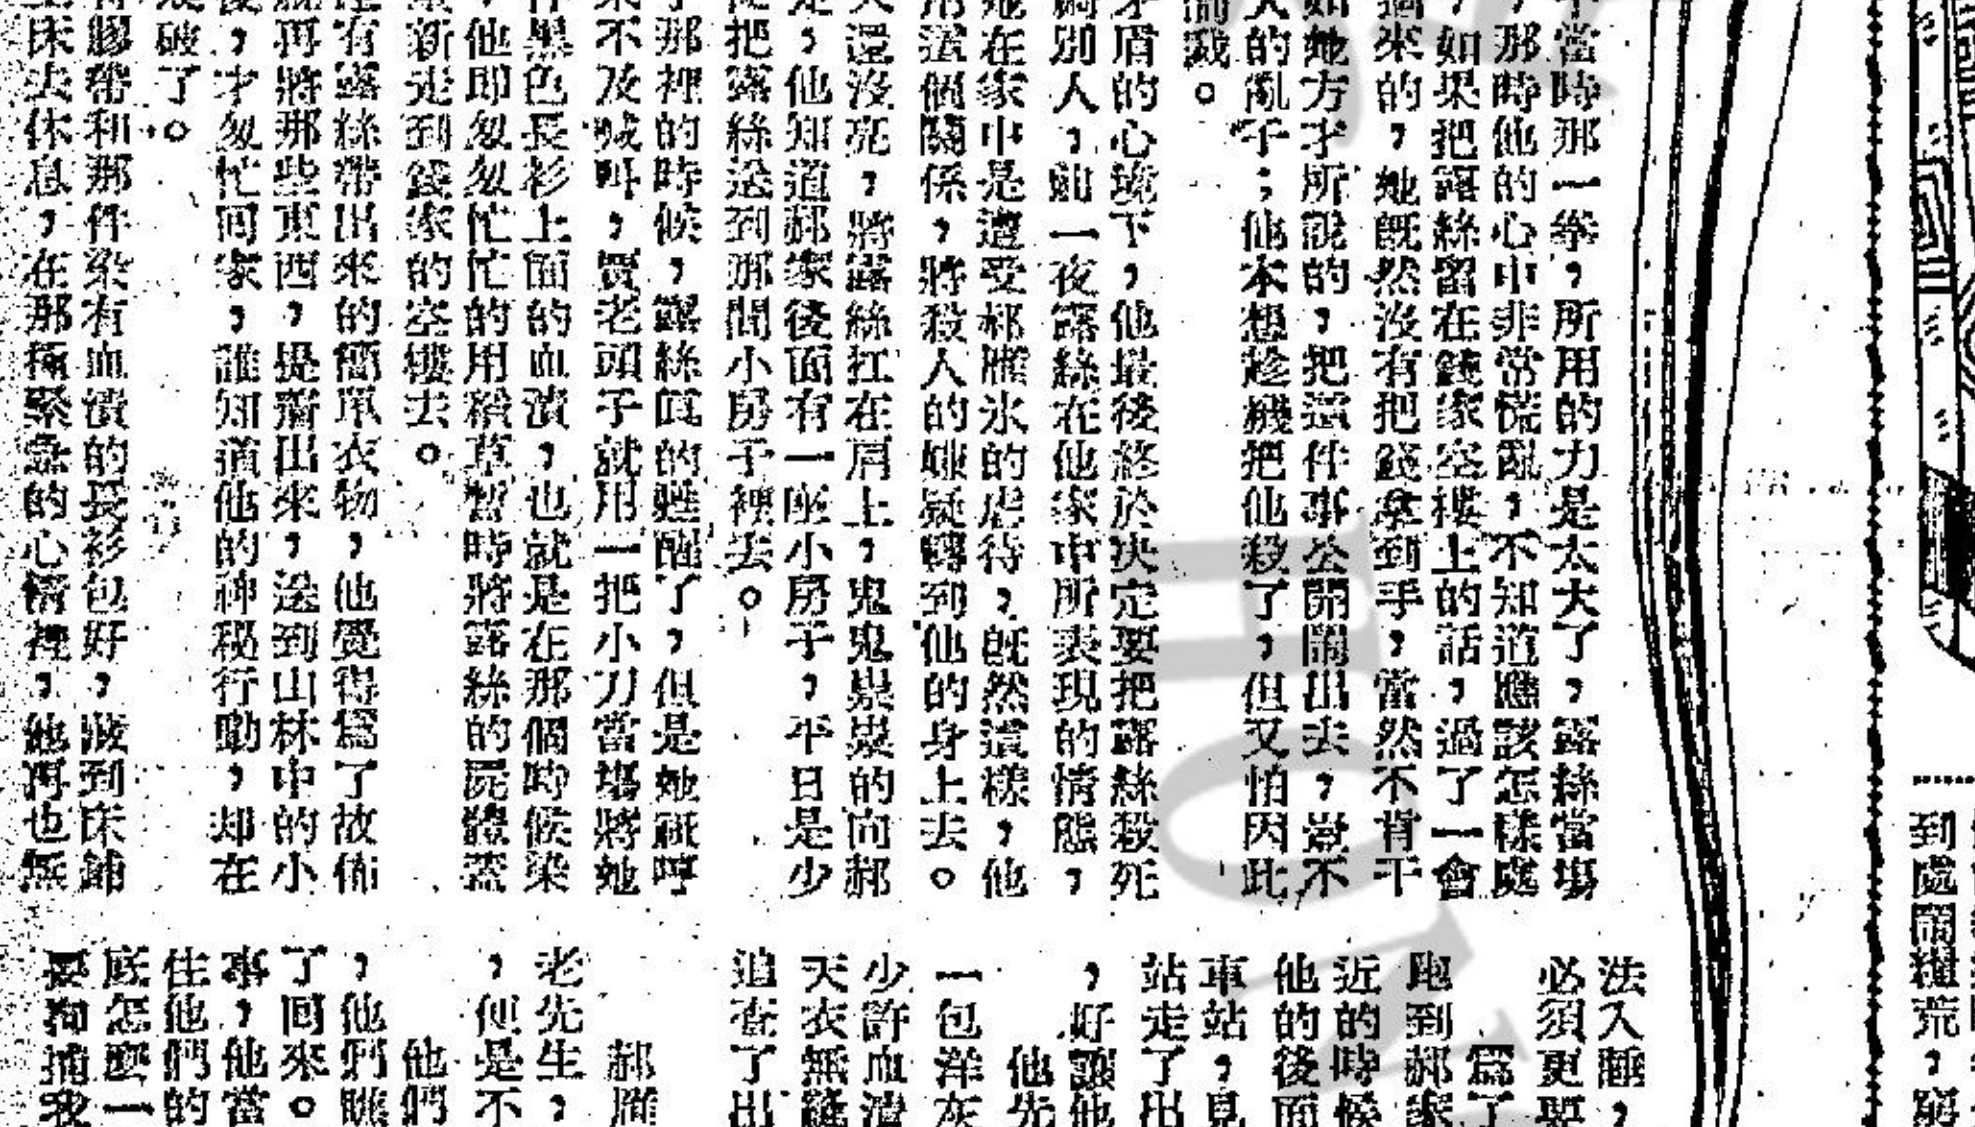 不當時那一拳，所用的力是太大了，露絲當場
，那時他的心中非常慌亂，不知道應該怎樣處
，如果把露絲留在錢家空樓上的話，過了一會
過來的，她既然沒有把錢拿到手，當然不肯干
如她方才所說的，把這件事公開鬧出去，豈不
大的亂子；他本想趁機把他殺了，但又怕因此
。
矛盾的心境下，他最後終於决定要把露絲殺死
別人，一夜露絲在他家中所表現的情態，
她在家中是遭受郝雁氷的虐待，既然這樣，他
用這個關係，將殺人的嫌疑轉到他的身上去。
天還沒亮，將露絲扛在肩上，鬼鬼祟祟的向郝
走，他知道郝家後面有一座小房子，平日是少
便把露絲送到那間小房子裡去。
那裡的時候，露絲真的甦醒了，但是她祇哼
來不及喊叫，賈老頭子就用一把小刀當場將她
件黑色長衫上面的血漬，也就是在那個時候染
，他即匆匆忙忙的用稻草暫時將露絲的屍體蓋
重新走到錢家的空樓去。
有露絲帶出來的簡單衣物，他覺得爲了故佈
就再將那些東西，提齊出來，送到山林中的小
後，才匆忙回家，誰知道他的神秘行動，却在
破了。
膠帶和那件染有血漬的長衫包好，放到床舖
上床去休息，在那極緊急的心情裡，他再也無
法入睡，
必須更要
爲了
跑到郝家
近的時候
他的後面
車站，見
站走了出
，好讓他
他先
一包洋灰
少許血漬
天衣無縫
追查了出
郝雁
老先生，
，便是不
他們
，他們瞧
了回來。
事，他當
住他們的
底怎麼一
要拘捕我
到處鬧糧荒，窮